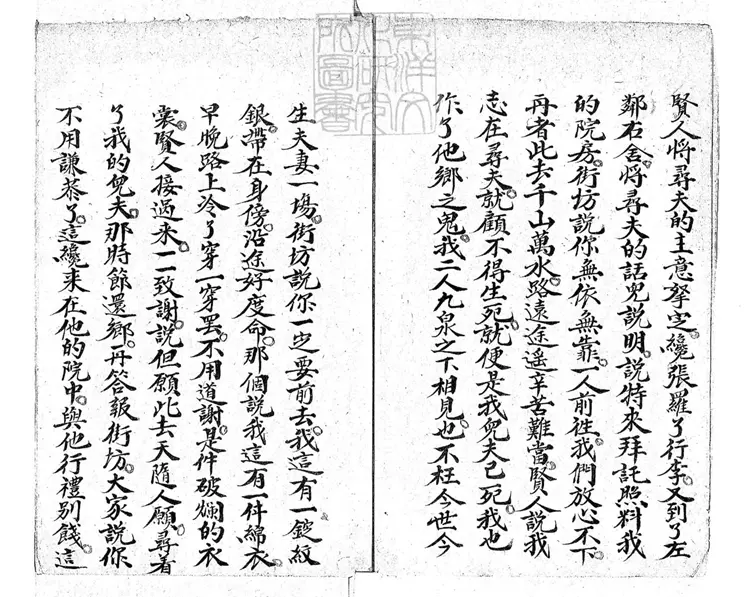 賢人將尋夫的主意拏定纔張羅了行李又到了左
鄰右舍將尋夫的話兒說明說特來拜託照料我
的院房街坊說你無依無靠一人前徃我們放心不下
再者此去千山萬水路遠途遥辛苦難當賢人說我
志在尋夫就顧不得生死就便是我兒夫已死我也
作了他鄉之鬼我二人九泉之下相見也不枉今世今
生夫妻一場街坊說你一定要前去我這有一錠紋
銀帶在身傍沿途好度命那個說我這有一件綿衣
早晚路上冷了穿一穿罷不用道謝是件破爛的衣
裳賢人接過來一一致謝說但願此去天隨人願尋着
了我的兒夫那時節還鄉再答報街坊大家說你
不用謙恭了這纔來在他的院中與他行禮別餞這
東洋文
化研究
所圖書